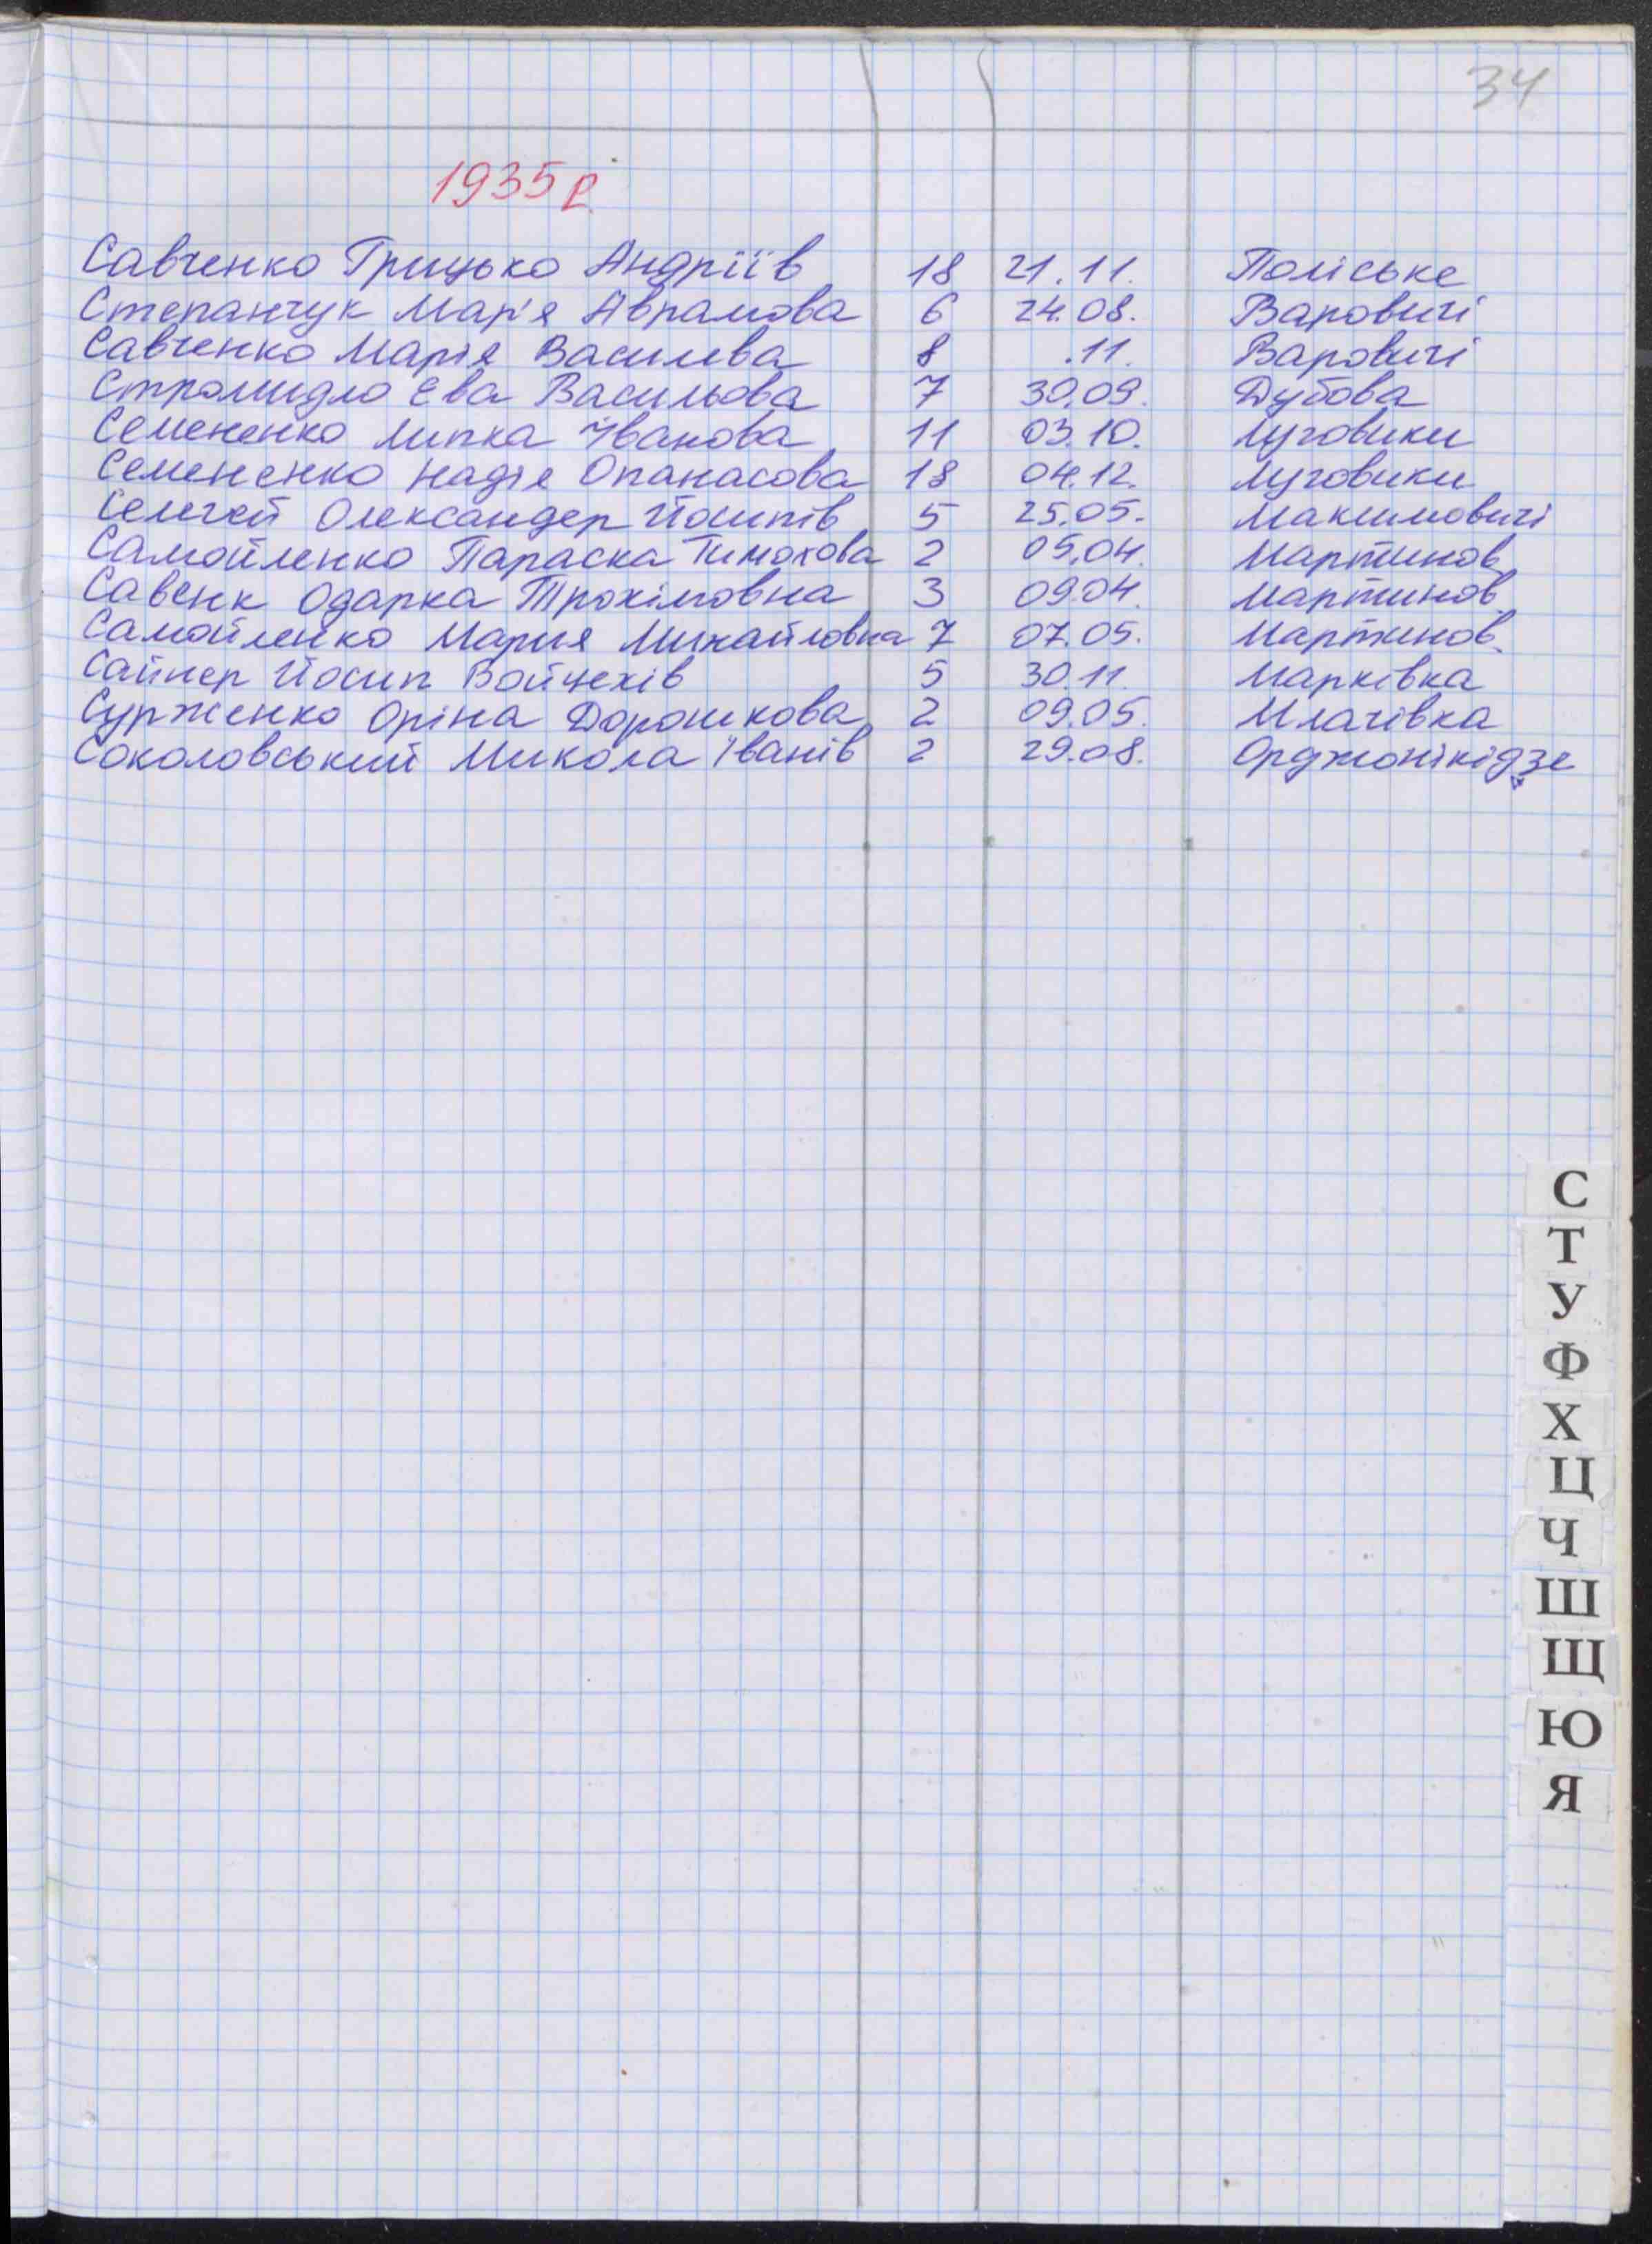 34
1935 р.
Савченко Грицько Андріїв 18 21.11. Поліське
Степанчук Мар'я Аврамова 6 24.08. Варовичі
Савченко Марія Василева 8 .11. Варовичі
Стромидло Ева Васильова 7 30.09. Дубова
Семененко Липка Іванова 11 03.10. Луговики
Семененко Надія Опанасова 18 04.12. Луговики
Селегей Олександер Йосипів 5 25.05. Максимовичі
Самойленко Параска Тимохова 2 05.04. Мартинов.
Савенк Одарка Трохімовна 3 09.04. Мартинов.
Самойленко Мария Михайловна 7 07.05. Мартинов.
Сайнер Йосип Войцехів 5 30.11. Марківка
Сурженко Оріна Дорошкова 2 09.05. Млачівка
Соколовський Микола Іванів 2 29.08. Орджонікідзе
С
Т
У
Ф
Х
Ц
Ч
Ш
Щ
Ю
Я